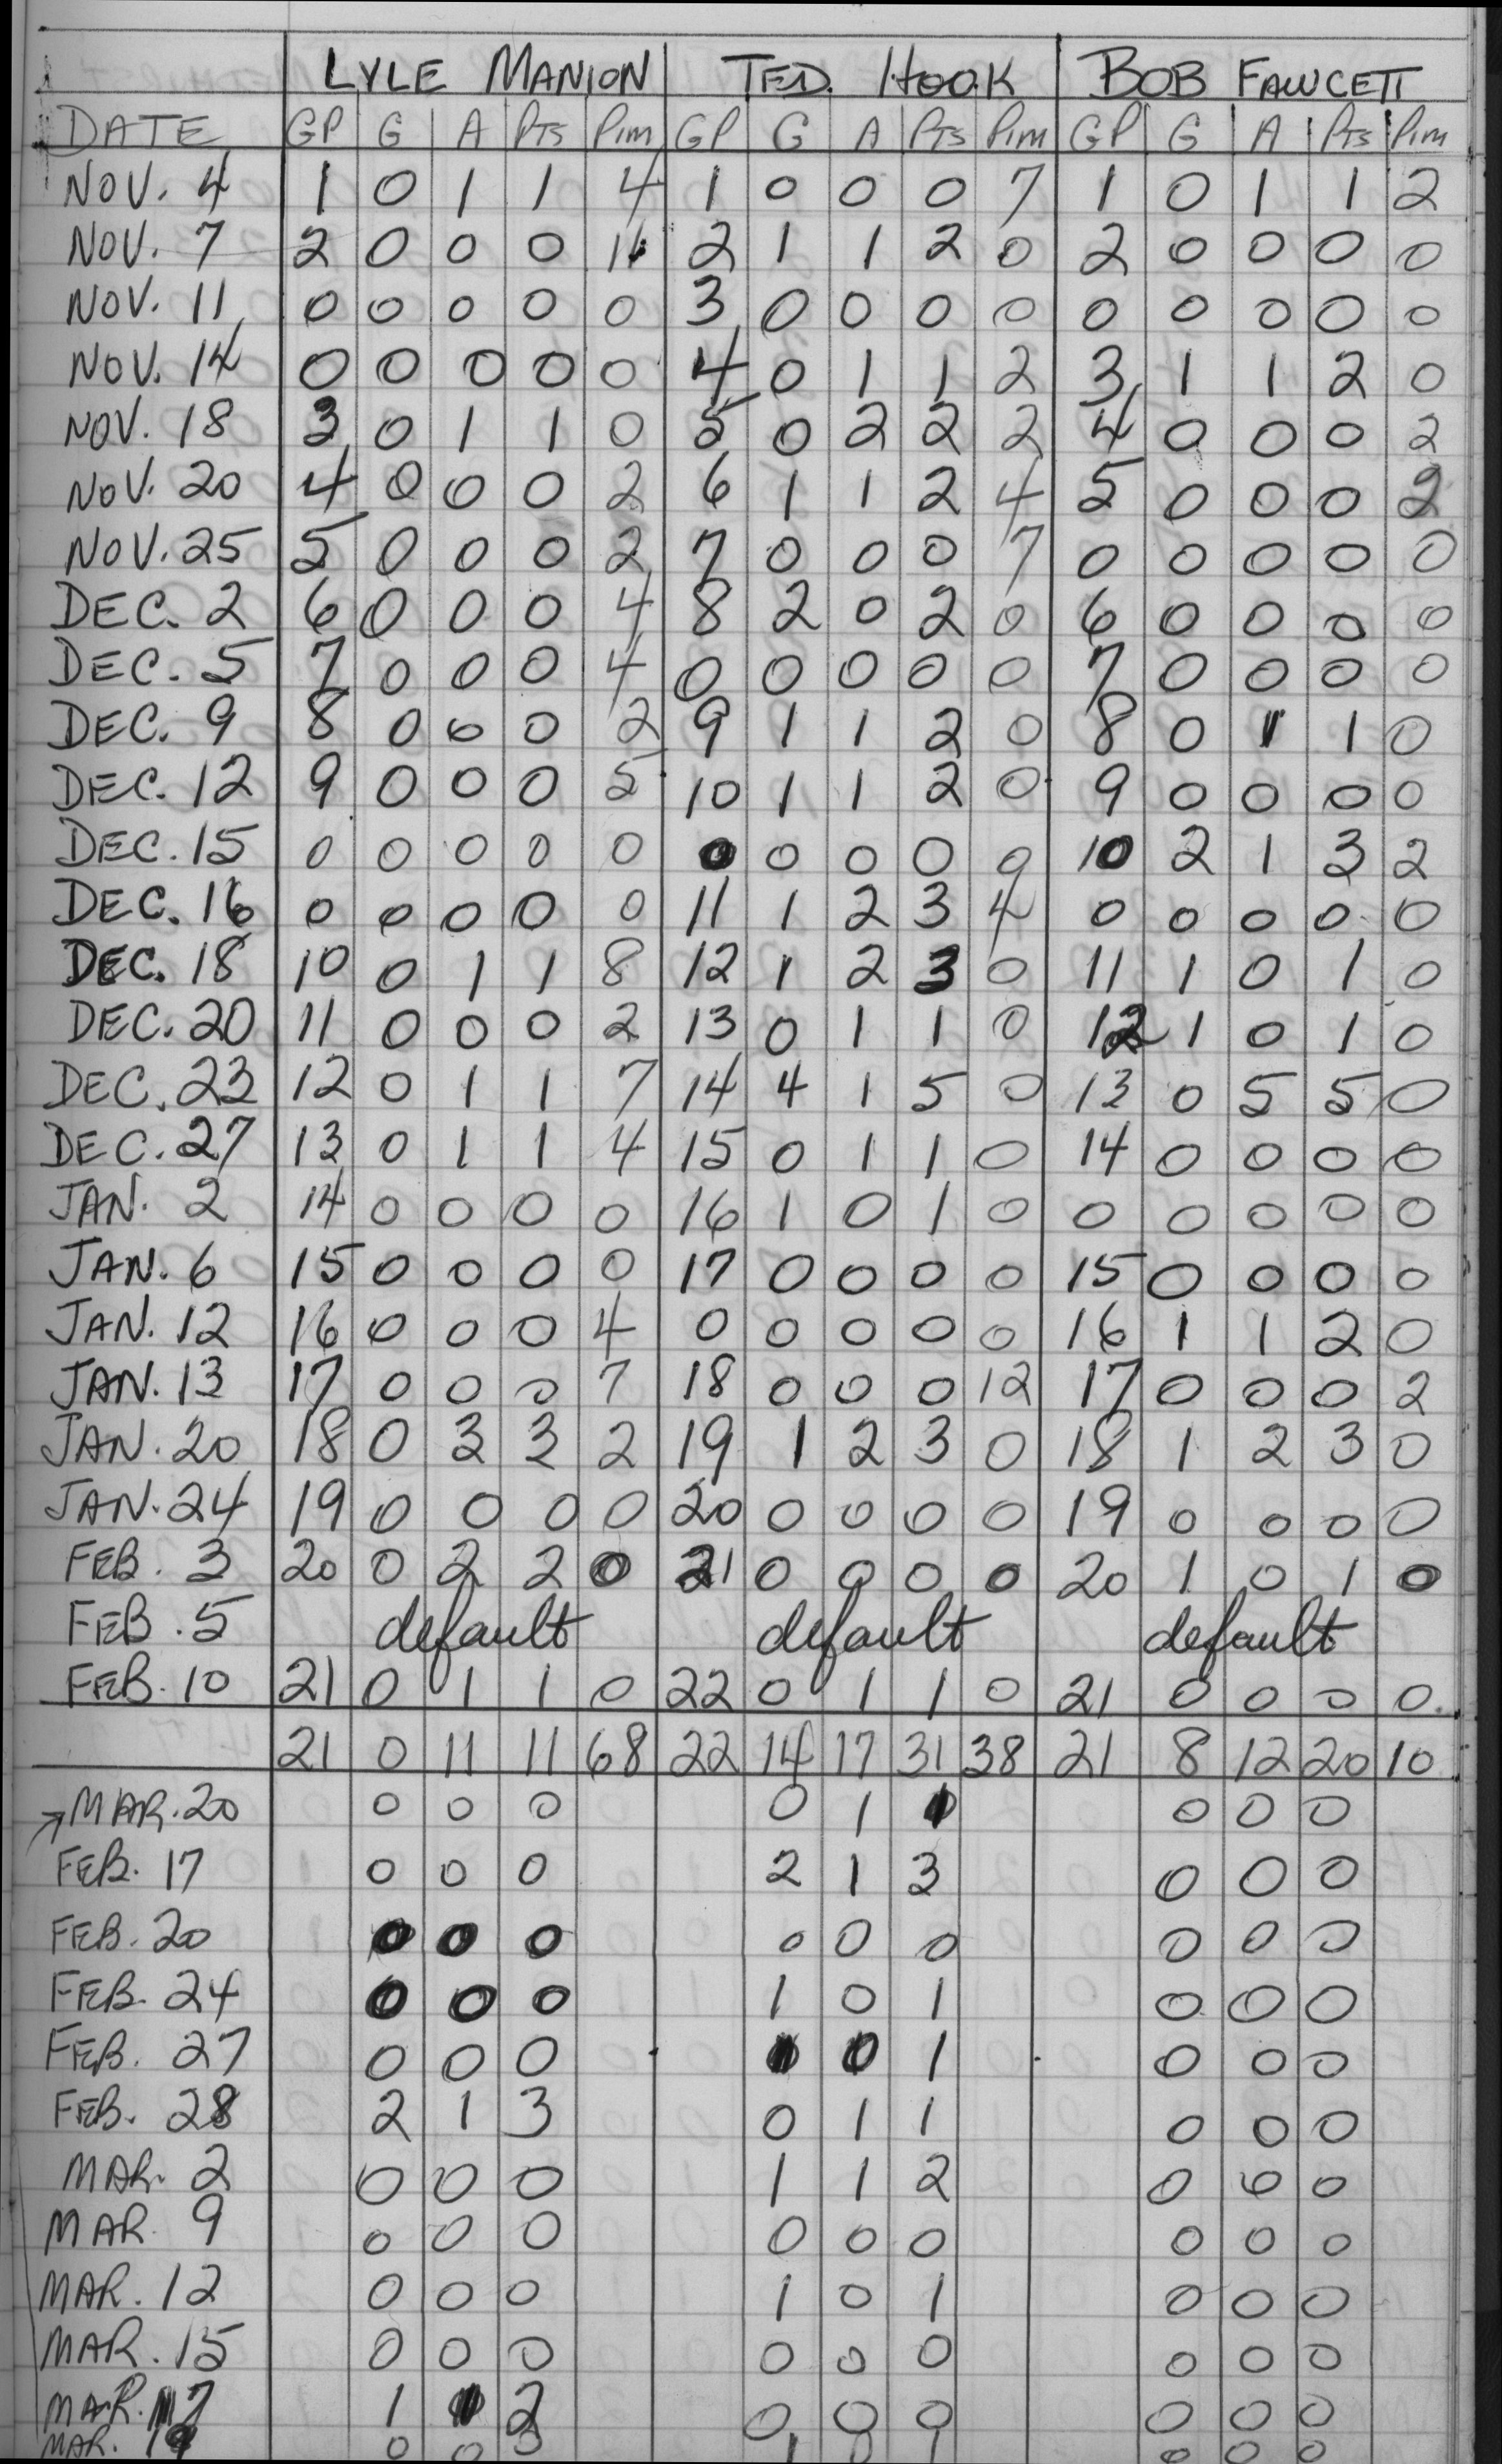 LYLE MANION TED. HOOK BOB FAWCETT
DATE GP G A PTS Pim GP G A PTS Pim GP G A PTS Pim
NOV. 4 1 0 1 1 4 1 0 0 0 7 1 0 1 1 2
NOV. 7 2 0 0 0 11 2 1 1 2 0 2 0 0 0 0
NOV. 11 0 0 0 0 0 3 0 0 0 0 0 0 0 0 0
NOV. 14 0 0 0 0 0 4 0 1 1 2 3 1 1 2 0
NOV. 18 3 0 1 1 0 5 0 2 2 2 4 0 0 0 2
NOV. 20 4 0 0 0 2 6 1 1 2 4 5 0 0 0 2
NOV. 25 5 0 0 0 2 7 0 0 0 7 0 0 0 0 0
DEC. 2 6 0 0 0 4 8 2 0 2 0 6 0 0 0 0
DEC. 5 7 0 0 0 4 0 0 0 0 0 7 0 0 0 0
DEC. 9 8 0 0 0 2 9 1 1 2 0 8 0 1 1 0
DEC. 12 9 0 0 0 5 10 1 1 2 0 9 0 0 0 0
DEC. 15 0 0 0 0 0 0 0 0 0 0 10 2 1 3 2
DEC. 16 0 0 0 0 0 11 1 2 3 4 0 0 0 0 0
DEC. 18 10 0 1 1 8 12 1 2 3 0 11 1 0 1 0
DEC. 20 11 0 0 0 2 13 0 1 1 0 12 1 0 1 0
DEC. 23 12 0 1 1 7 14 4 1 5 0 13 0 5 5 0
DEC. 27 13 0 1 1 4 15 0 1 1 0 14 0 0 0 0
JAN. 2 14 0 0 0 0 16 1 0 1 0 0 0 0 0 0
JAN. 6 15 0 0 0 0 17 0 0 0 0 15 0 0 0 0
JAN. 12 16 0 0 0 4 0 0 0 0 0 16 1 1 2 0
JAN. 13 17 0 0 0 7 18 0 0 0 12 17 0 0 0 2
JAN. 20 18 0 3 3 2 19 1 2 3 0 18 1 2 3 0
JAN. 24 19 0 0 0 0 20 0 0 0 0 19 0 0 0 0
FEB. 3 20 0 2 2 0 21 0 0 0 0 20 1 0 1 0
FEB. 5 default default default
FEB. 10 21 0 1 1 0 22 0 1 1 0 21 0 0 0 0
21 0 11 11 68 22 14 17 31 38 21 8 12 20 10
MAR. 20 0 0 0 0 1 1 0 0 0
FEB. 17 0 0 0 2 1 3 0 0 0
FEB. 20 0 0 0 0 0 0 0 0 0
FEB. 24 0 0 0 1 0 1 0 0 0
FEB. 27 0 0 0 1 0 1 0 0 0
FEB. 28 2 1 3 0 1 1 0 0 0
MAR. 2 0 0 0 1 1 2 0 0 0
MAR 9 0 0 0 0 0 0 0 0 0
MAR. 12 0 0 0 1 0 1 0 0 0
MAR. 15 0 0 0 0 0 0 0 0 0
MAR. 17 1 1 2 0 0 0 0 0 0
MAR. 19 0 0 0 1 0 1 0 0 0